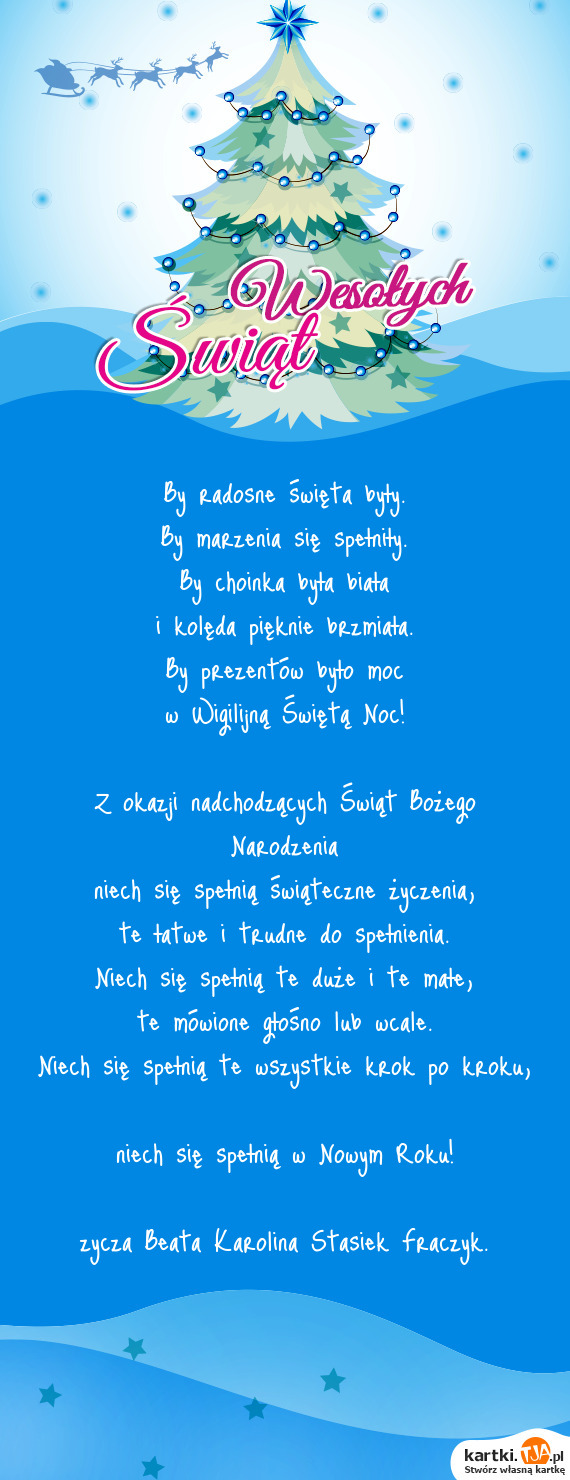 Wesołych
Świąt
By radosne święta były.
By marzenia się spełniły.
By choinka była biała
i kolęda pięknie brzmiała.
By prezentów było moc
w Wigilijną Świętą Noc!
Z okazji nadchodzących Świąt Bożego
Narodzenia
niech się spełnią świąteczne życzenia,
te łatwe i trudne do spełnienia.
Niech się spełnią te duże i te małe,
te mówione głośno lub wcale.
Niech się spełnią te wszystkie krok po kroku,
niech się spełnią w Nowym Roku!
zycza Beata Karolina Stasiek fraczyk.
kartki.TJA.pl
Stwórz własną kartkę